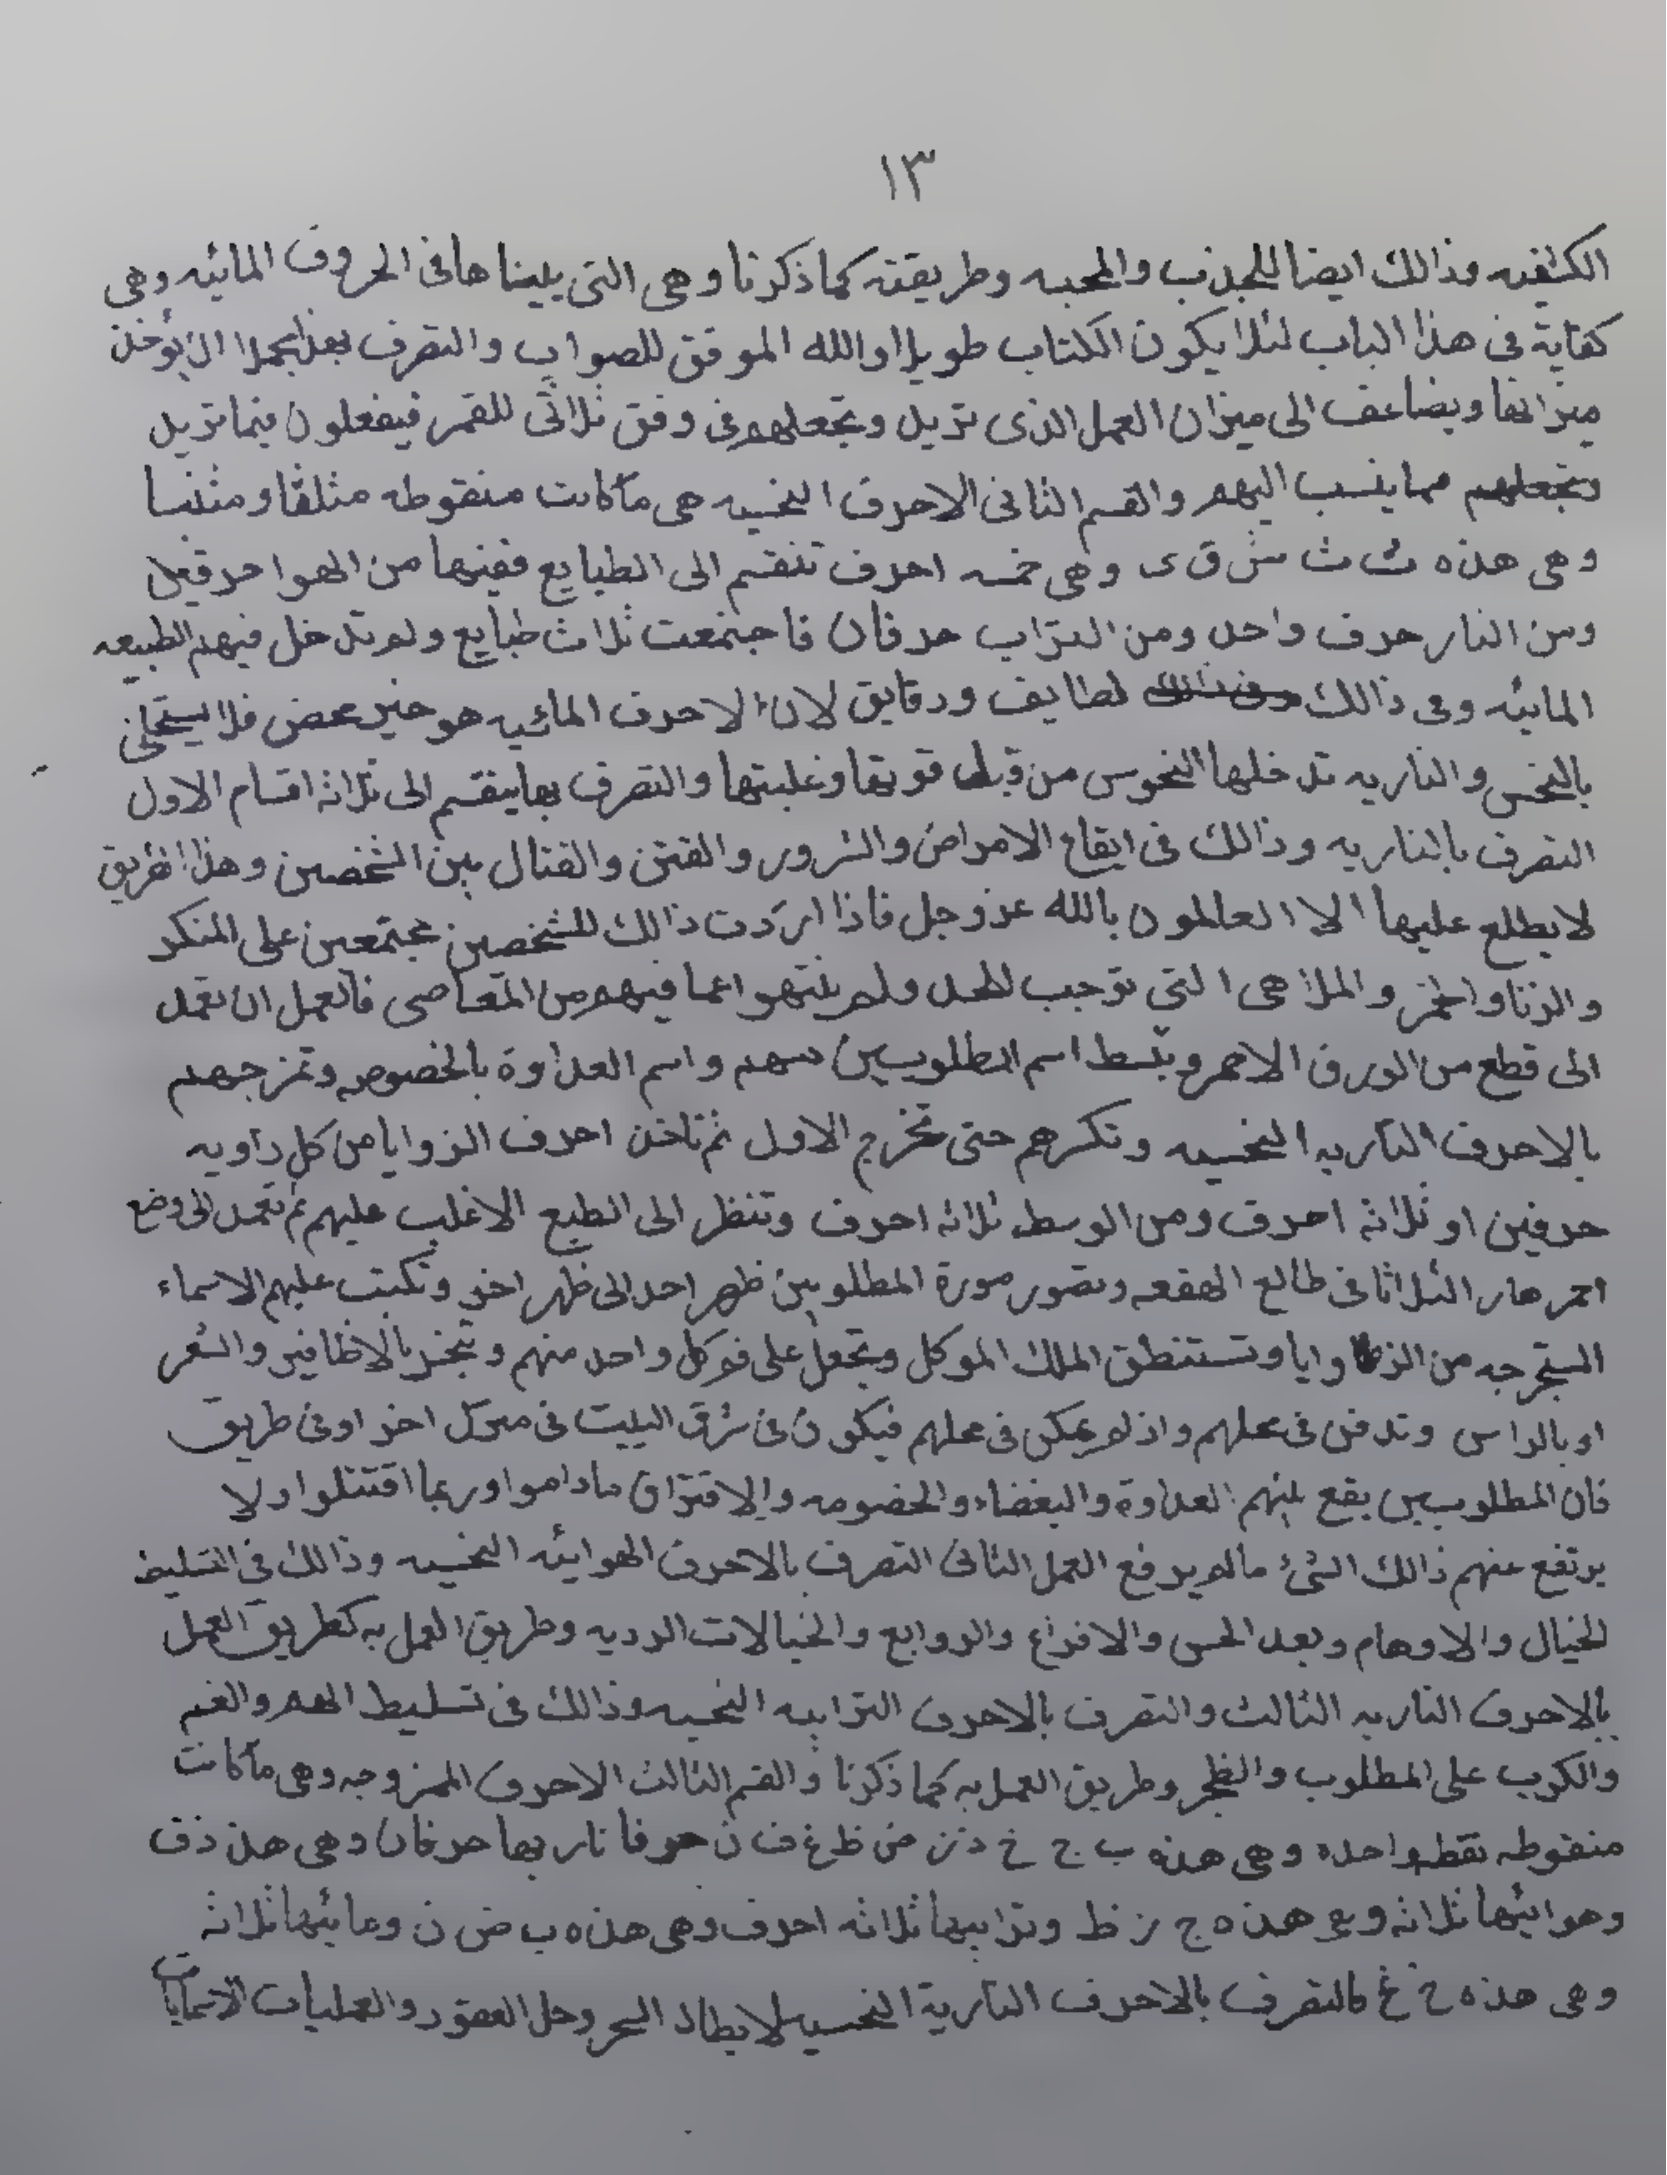 ١٣
الكثفيه وذالك ايضا للجذب والمحبه وطريقته كما ذكرنا وهى التى بيناها فى الحروف المائيه وهى
كفاية فى هذا الباب لئلا يكون الكتاب طويلا والله الموفق للصواب والتصرف بهذا ان يؤخذ
ميزانها ويضاعف الى ميزان العمل الذى تريد وتجعلهم فى وفق ثلاثى للقمر فيفعلون فيما تريد
وتجعلهم مما ينسب اليهم والقسم الثانى الاحرف النحسيه هى ما كانت منقوطه مثلثا ومثنيا
وهى هذه ت ث ش ق ى وهى خمسه احرف تنقسم الى الطبايع ففيها من الهوا حرف
ومن النار حرف واحد ومن التراب حرفان فاجتمعت ثلاث طبايع ولم تدخل فيهم الطبيعه
المائيه وفى ذالك لطايف ودقايق لان الاحرف المائيه هو خير محض فلا
بالنحس والناريه تدخلها النحوس من قبل قوتها وغلبتها والتصرف بها ينقسم الى ثلاثه اقسام الاول
التصرف بالناريه وذالك فى ايقاع الامراض والشرور والفتن والقتال بين الشخصين وهذا طريق
لا يطلع عليها الا العالمون بالله عز وجل فاذا اردت ذالك للشخصين مجتمعين على المنكر
والزنا والخمر والملاهى التى توجب للحد ولم ينتهوا عما فيهم من المعاصى فالعمل ان تعمد
الى قطع من الورق الاحمر وبسط اسم المطلوبين واسم العداوة بالخصوص وتمزجهم
بالاحرف الناريه النحسيه وتكسرهم حتى تخرج الاول ثم تاخذ احرف الزوايا من كل زاويه
حرفين او ثلاثه احرف ومن الوسط ثلاثه احرف وتنظر الى الطبع الاغلب عليهم ثم تعمد الى وضع
احمر الثلاثا فى طالع الهقعه وتصور صورة المطلوبين ظهر احد الى ظهر اخر وتكتب عليهم الاسماء
من الزوايا وتستنطق الملك الموكل وتجعل على فم كل واحد منهم وتبخر بالاظافير والشعر
او بالراس وتدفن فى محلهم واذ لم يمكن فى محلهم فيكون فى شرق البيت فى منزل اخر او فى طريق
فان المطلوبين يقع بينهم العداوة والبغضاء والخصومه والافتراق ماداموا وربما اقتتلوا ولا
يرتفع عنهم ذالك الشئ مالم يرفع العمل الثانى التصرف بالاحرف الهوائيه النحسيه وذالك فى التسليط
الخيال والاوهام وبعد الحس والافزاع والروابع والخيالات الرديه وطريق العمل به كطريق العمل
بالاحرف الناريه الثالث والتصرف بالاحرف الترابيه النحسيه وذالك فى تسليط الهم والغم
والكرب على المطلوب والظجر وطريق العمل به كما ذكرنا والقسم الثالث الاحرف الممزوجه وهى ما كانت
منقوطه نقطه واحده وهى هذه ب ج خ ذ ز ض ظ غ ف ن حرفا ناريها حرفان وهى هذ ذ ف
وهوائيها ثلاثه وهى هذه ج ز ظ وترابيها ثلاثه احرف وهى هذه ب ض ن ومائيها ثلاثه
وهى هذه خ غ فالتصرف بالاحرف النارية النحسيه لابطال السحر وحل العقود والعمليات